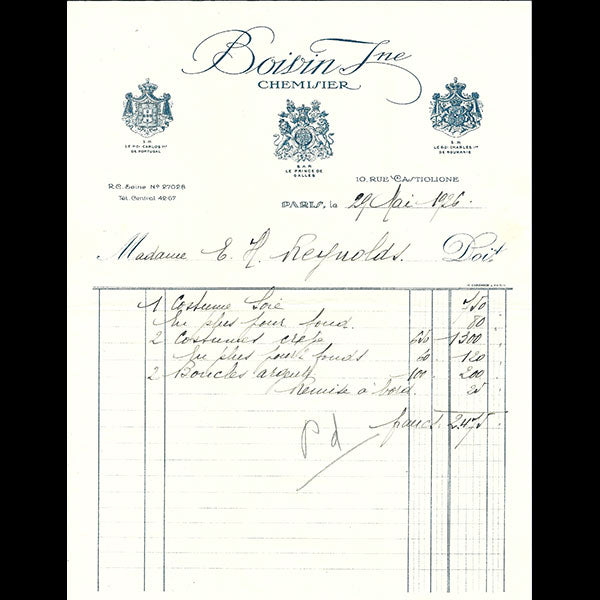 Boivin Jne
CHEMISIER
S. M.
LE ROI CARLOS Iᵉʳ
DE PORTUGAL
S.A.R
LE PRINCE DE
GALLES
S. M.
LE ROI CHARLES Iᵉʳ
DE ROUMANIE
R.C. Seine Nº 27028
Tél. Central 42-67
10, RUE CASTIGLIONE
PARIS, le 29 Mai 1926.
Madame E. H. Reynolds. Doit
1 Costume Soie 750
En plus pour fond. 80
2 Costumes crêpe 650 1300
En plus pour 2 fonds 60 120
2 Boucles argent 100 200
Remise à bord. 25
francs. 2475
Pd